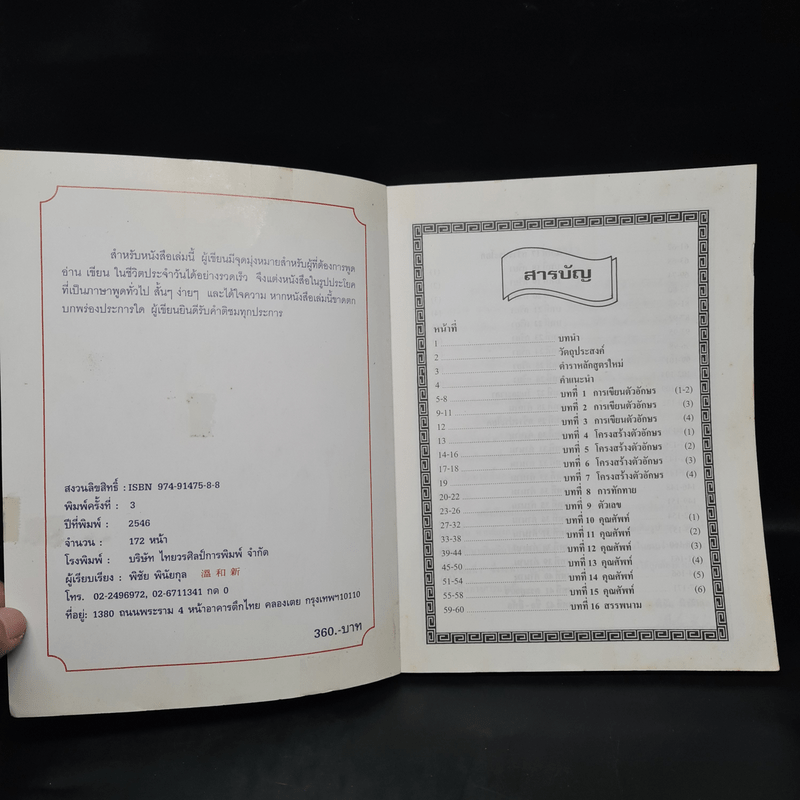 สำหรับหนังสือเล่มนี้ ผู้เขียนมีจุดมุ่งหมายสำหรับผู้ที่ต้องการพูด
อ่าน เขียน ในชีวิตประจำวันได้อย่างรวดเร็ว จึงแต่งหนังสือในรูปประโยค
ที่เป็นภาษาพูดทั่วไป สั้นๆ ง่ายๆ และได้ใจความ หากหนังสือเล่มนี้ขาดตก
บกพร่องประการใด ผู้เขียนยินดีรับคำติชมทุกประการ
สงวนลิขสิทธิ์ : ISBN 974-91475-8-8
พิมพ์ครั้งที่ : 3
ปีที่พิมพ์ : 2546
จำนวน : 172 หน้า
โรงพิมพ์ : บริษัท ไทยวรศิลป์การพิมพ์ จำกัด
ผู้เรียบเรียง : พิชัย พินัยกุล 溫和新
โทร. 02-2496972, 02-6711341 กด 0
ที่อยู่: 1380 ถนนพระราม 4 หน้าอาคารตึกไทย คลองเตย กรุงเทพฯ10110
360.-บาท
สารบัญ
หน้าที่
1 บทนำ
2 วัตถุประสงค์
3 ตำราหลักสูตรใหม่
4 คำแนะนำ
5-8 บทที่ 1 การเขียนตัวอักษร (1-2)
9-11 บทที่ 2 การเขียนตัวอักษร (3)
12 บทที่ 3 การเขียนตัวอักษร (4)
13 บทที่ 4 โครงสร้างตัวอักษร (1)
14-16 บทที่ 5 โครงสร้างตัวอักษร (2)
17-18 บทที่ 6 โครงสร้างตัวอักษร (3)
19 บทที่ 7 โครงสร้างตัวอักษร (4)
20-22 บทที่ 8 การทักทาย
23-26 บทที่ 9 ตัวเลข
27-32 บทที่ 10 คุณศัพท์ (1)
33-38 บทที่ 11 คุณศัพท์ (2)
39-44 บทที่ 12 คุณศัพท์ (3)
45-50 บทที่ 13 คุณศัพท์ (4)
51-54 บทที่ 14 คุณศัพท์ (5)
55-58 บทที่ 15 คุณศัพท์ (6)
59-60 บทที่ 16 สรรพนาม